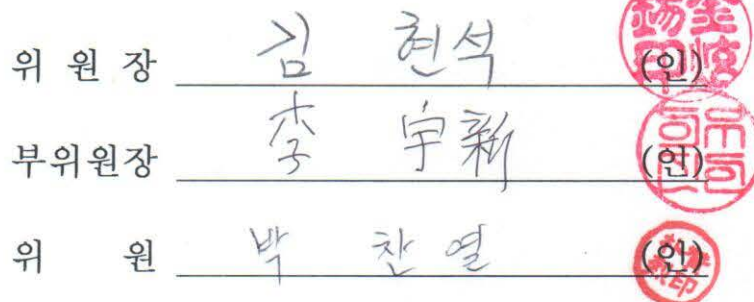 위 원 장 김 현석 (인)
부위원장 李 宇新 (인)
위 원 박 찬열 (인)